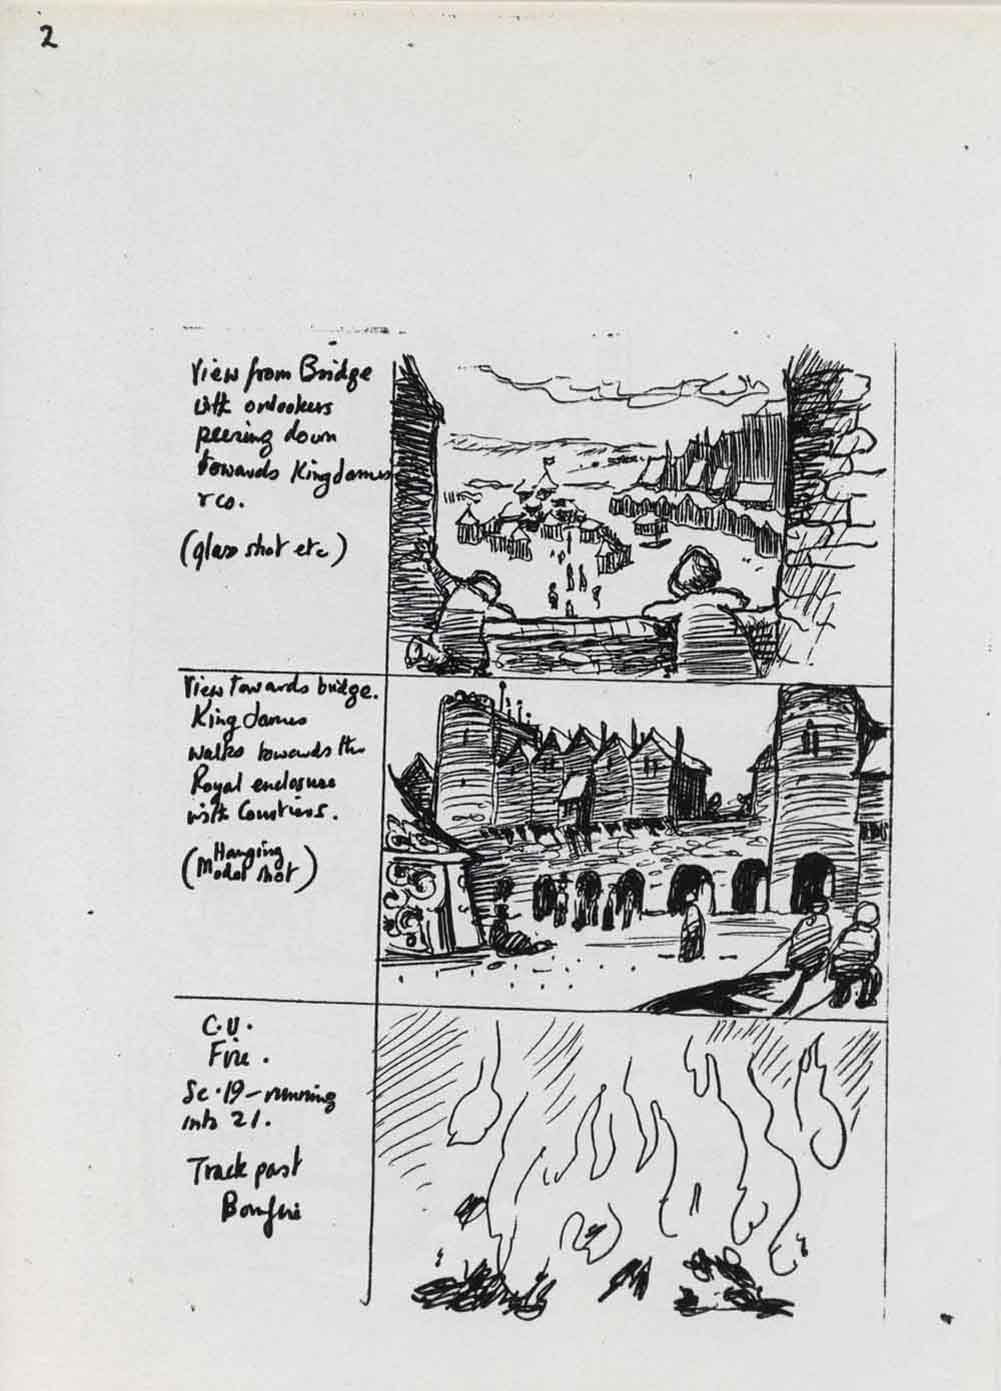 2
View from Bridge
with onlookers
peering down
towards King James
& co.
(glass shot etc)
View towards bridge.
King James
walks towards the
Royal enclosure
with Courtiers.
(Hanging
Model shot)
C.U.
Fire.
Sc.19 - running
into 21.
Track past
Bonfire